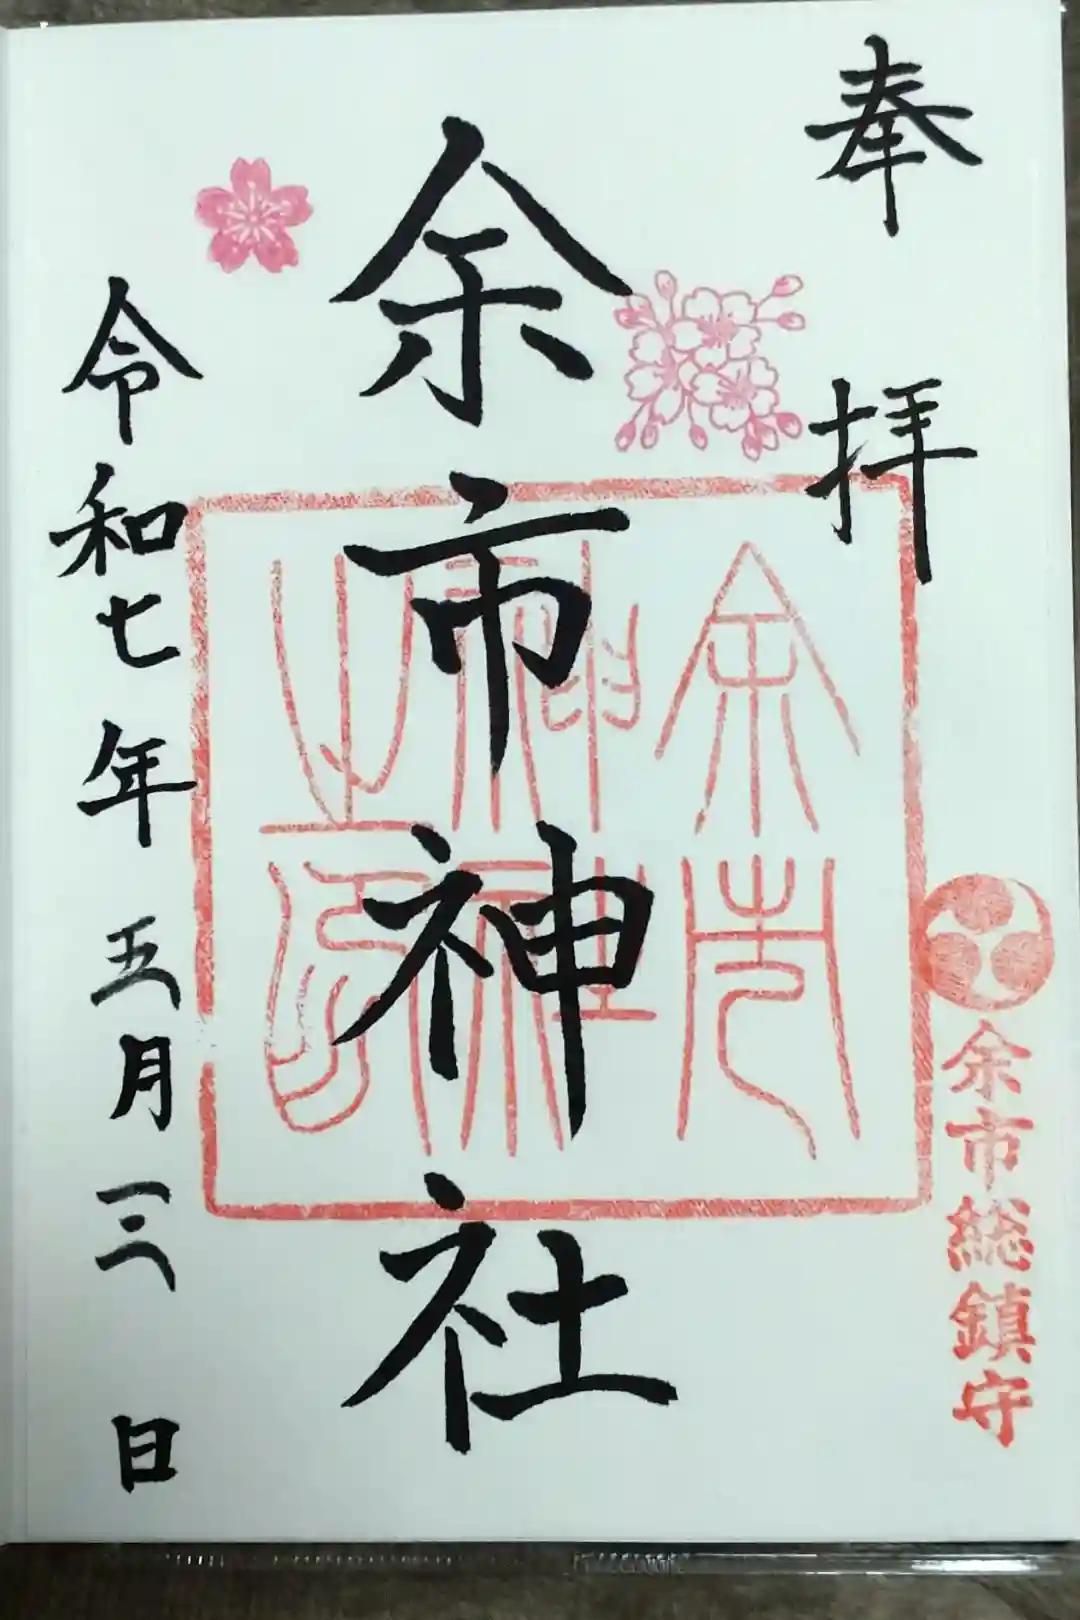 奉拝
余市総鎮守
余市神社
余市神社之印
令和七年五月三日